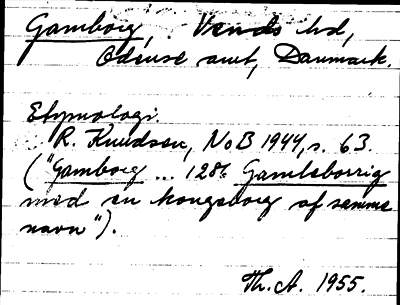 Gamborg, Vends hd,
Odense amt, Danmark.
Etymologi.
R. Knudsen, NoB 1944, s. 63.
("Gamborg ... 1286 Gamleborrig
med en kongsborg af samme
navn").
Th. A. 1955.